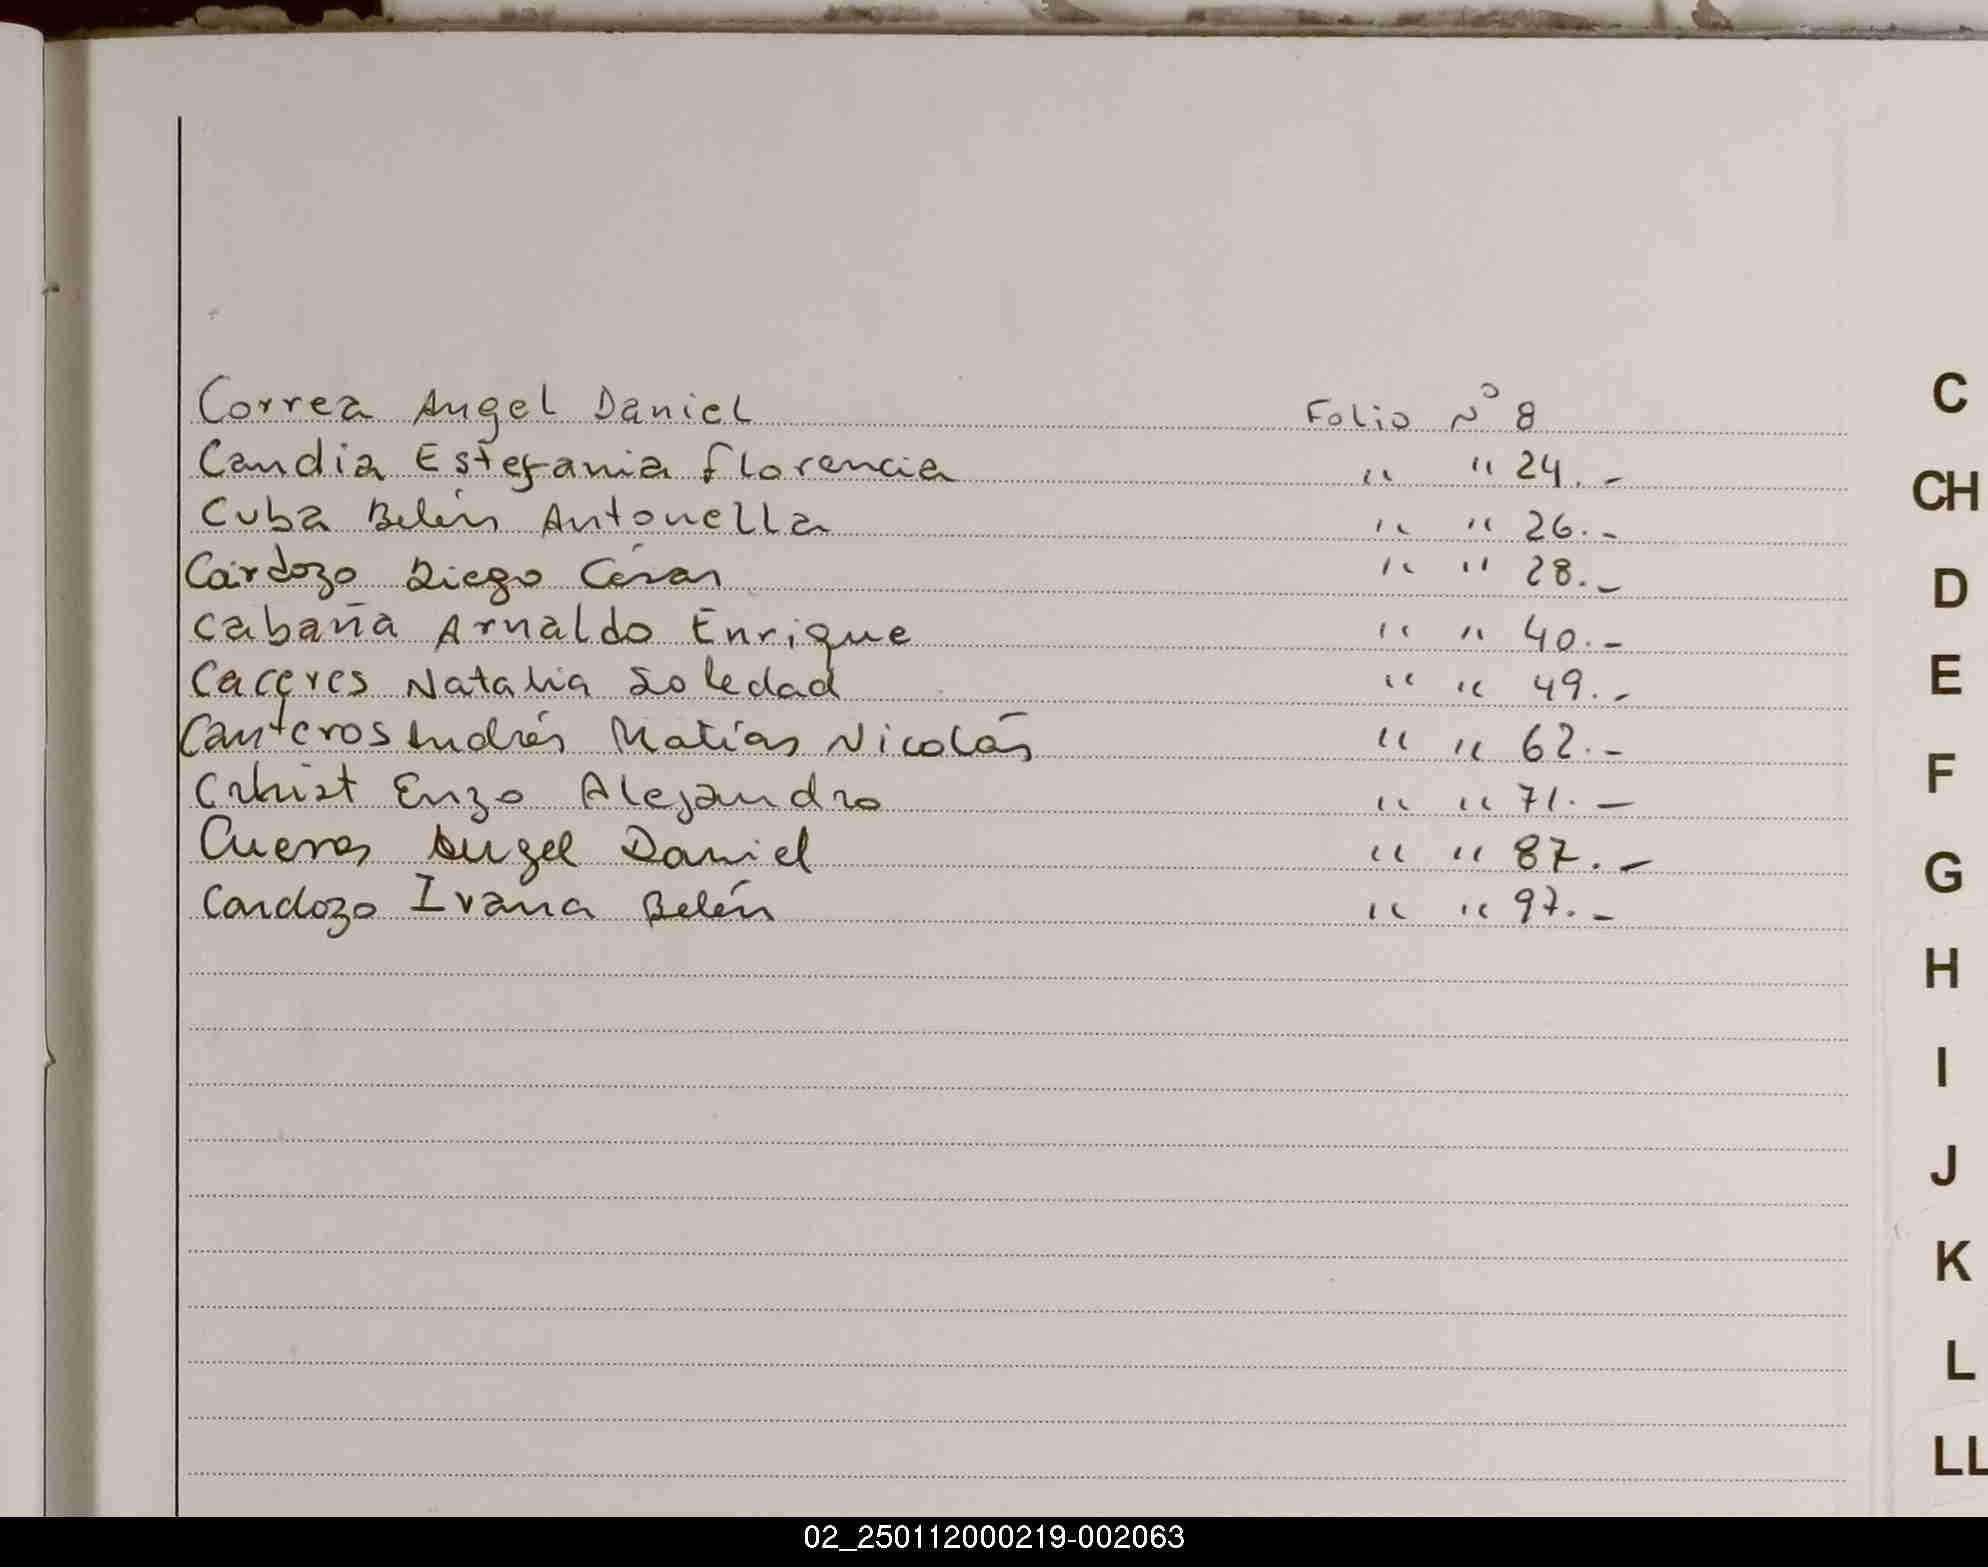 Correa Angel Daniel Folio Nº 8
Candia Estefania Florencia " " 24.-
Cuba Belén Antonella " " 26.-
Cardozo Diego César " " 28.-
Cabaña Arnaldo Enrique " " 40.-
Caceres Natalia Soledad " " 49.-
Canteros Andrés Matías Nicolás " " 62.-
Crhist Enzo Alejandro " " 71.-
Cuevas Angel Daniel " " 87.-
Cardozo Ivana Belén " " 97.-
C
CH
D
E
F
G
H
I
J
K
L
LL
02_250112000219-002063